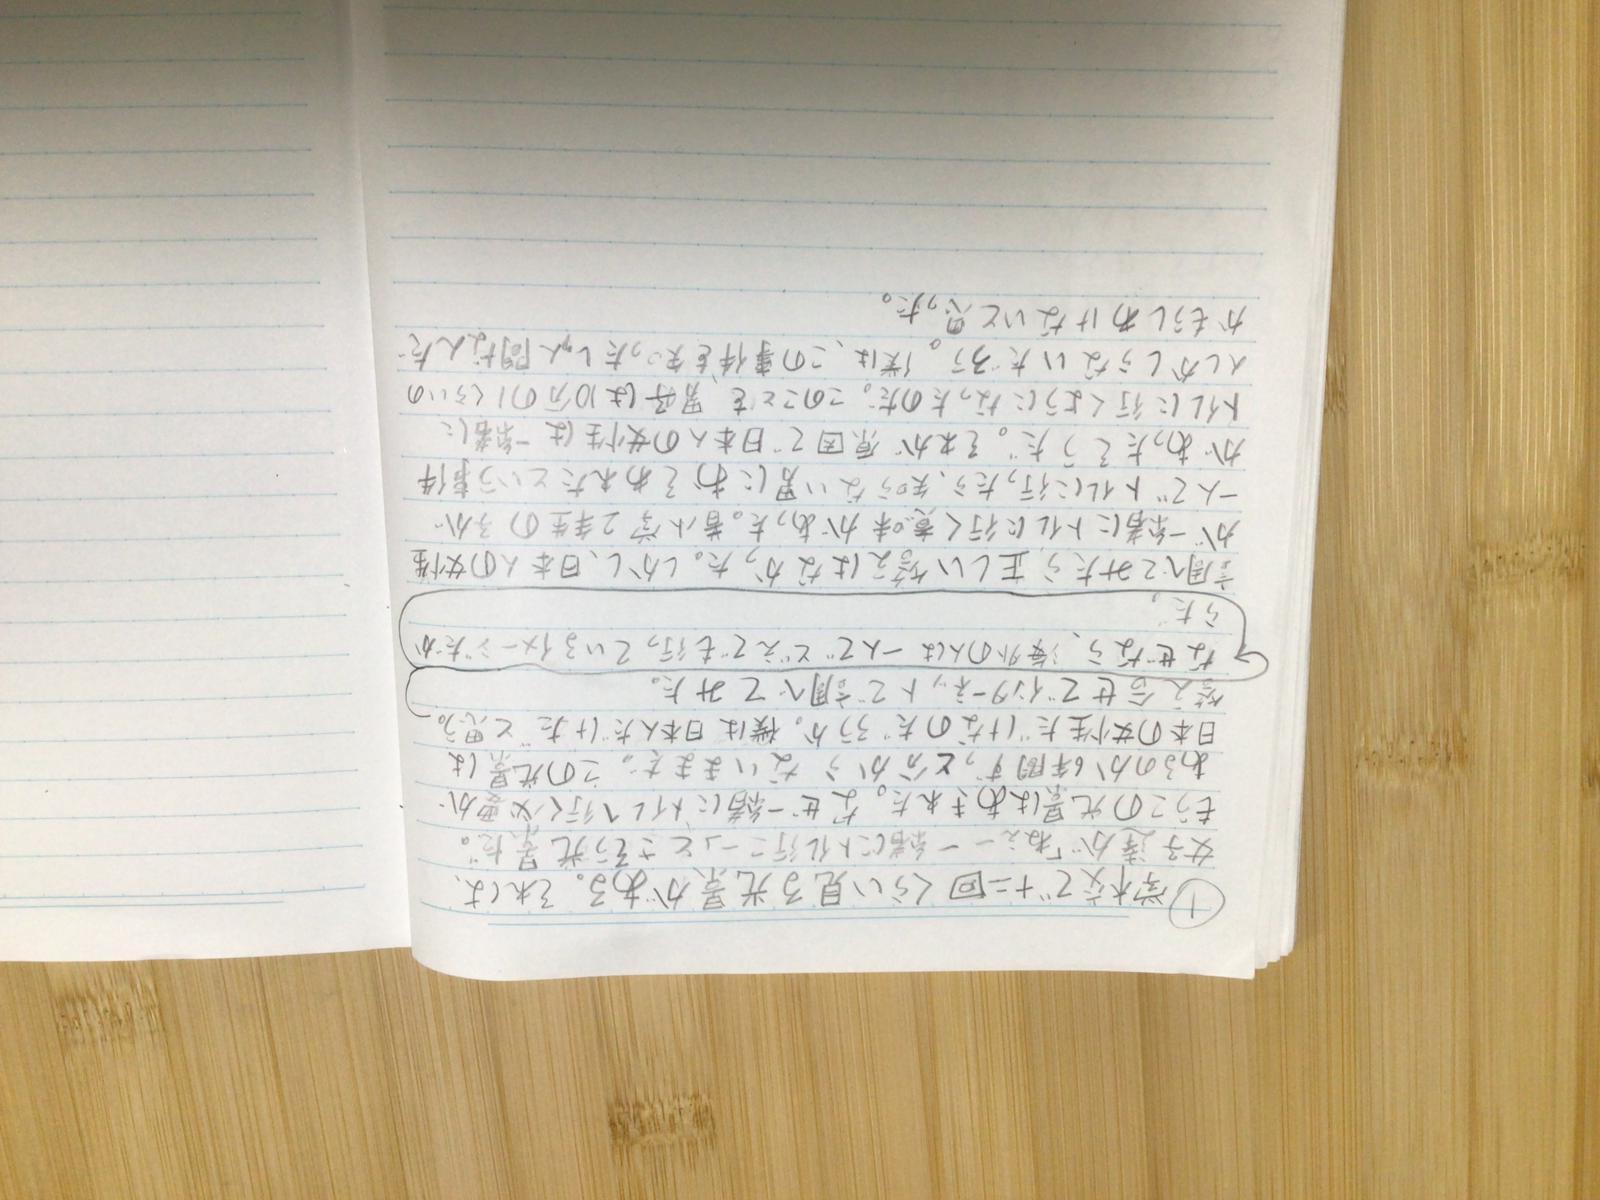 ① 学校で十二回くらい見る光景がある。それは、
女子達が「ねえー一緒にトイレ行こーっ」とさそう光景だ。
もうこの光景はあきれた。なぜ一緒にトイレへ行く必要が
あるのか6年間ずっと分からないままだ。この光景は
日本の女性だけなのだろうか。僕は日本人だけだと思う。
答え合せでインターネットで調べてみた。
なぜなら、海外の人は一人でどえでも行っているイメージだか
らだ。
調べてみたら、正しい答えはなかった。しかし、日本人の女性
が一緒にトイレに行く意味があった。昔小学2年生の子が
一人でトイレに行ったら、知らない男におそわれたという事件
があったそうだ。それが原因で日本人の女性は一緒に
トイレに行くようになったのだ。このことを男子は10分の1くらいの
人しかしらないだろう。僕は、この事件を知ったしゅん間なんだ
かもうしわけないと思った。